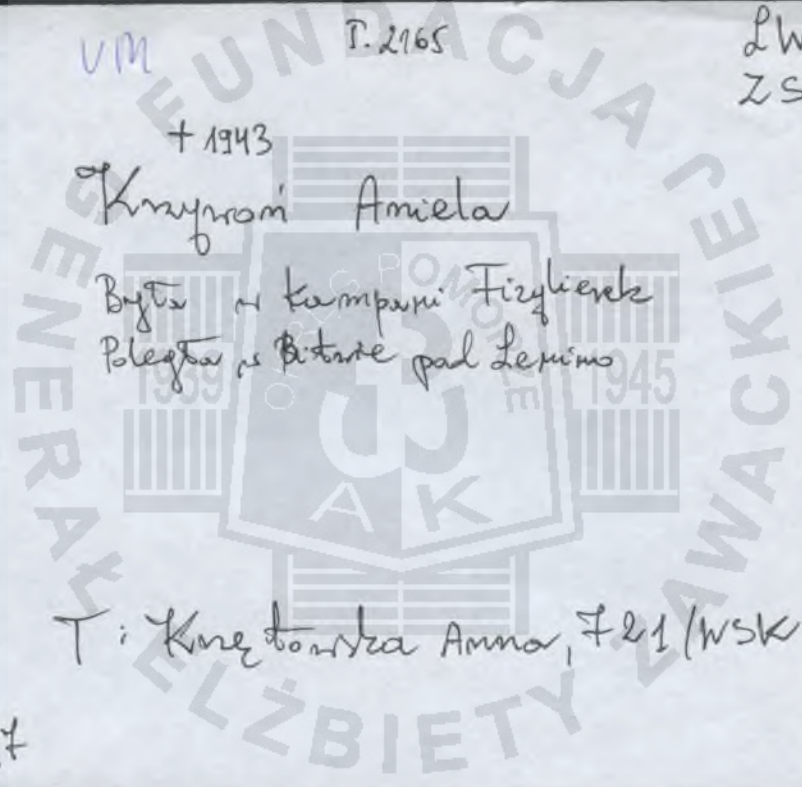 VM
T. 2165
LW
ZS
+ 1943
Krzywoń Aniela
Była w kompani Fizylierek
Poległa w Bitwie pod Lenino
T: Krzętowska Anna, 721/WSK
7
FUNDACJA GENERAŁ ELŻBIETY ZAWACKIEJ
OKRĘG POMORZE
1939
1945
AK